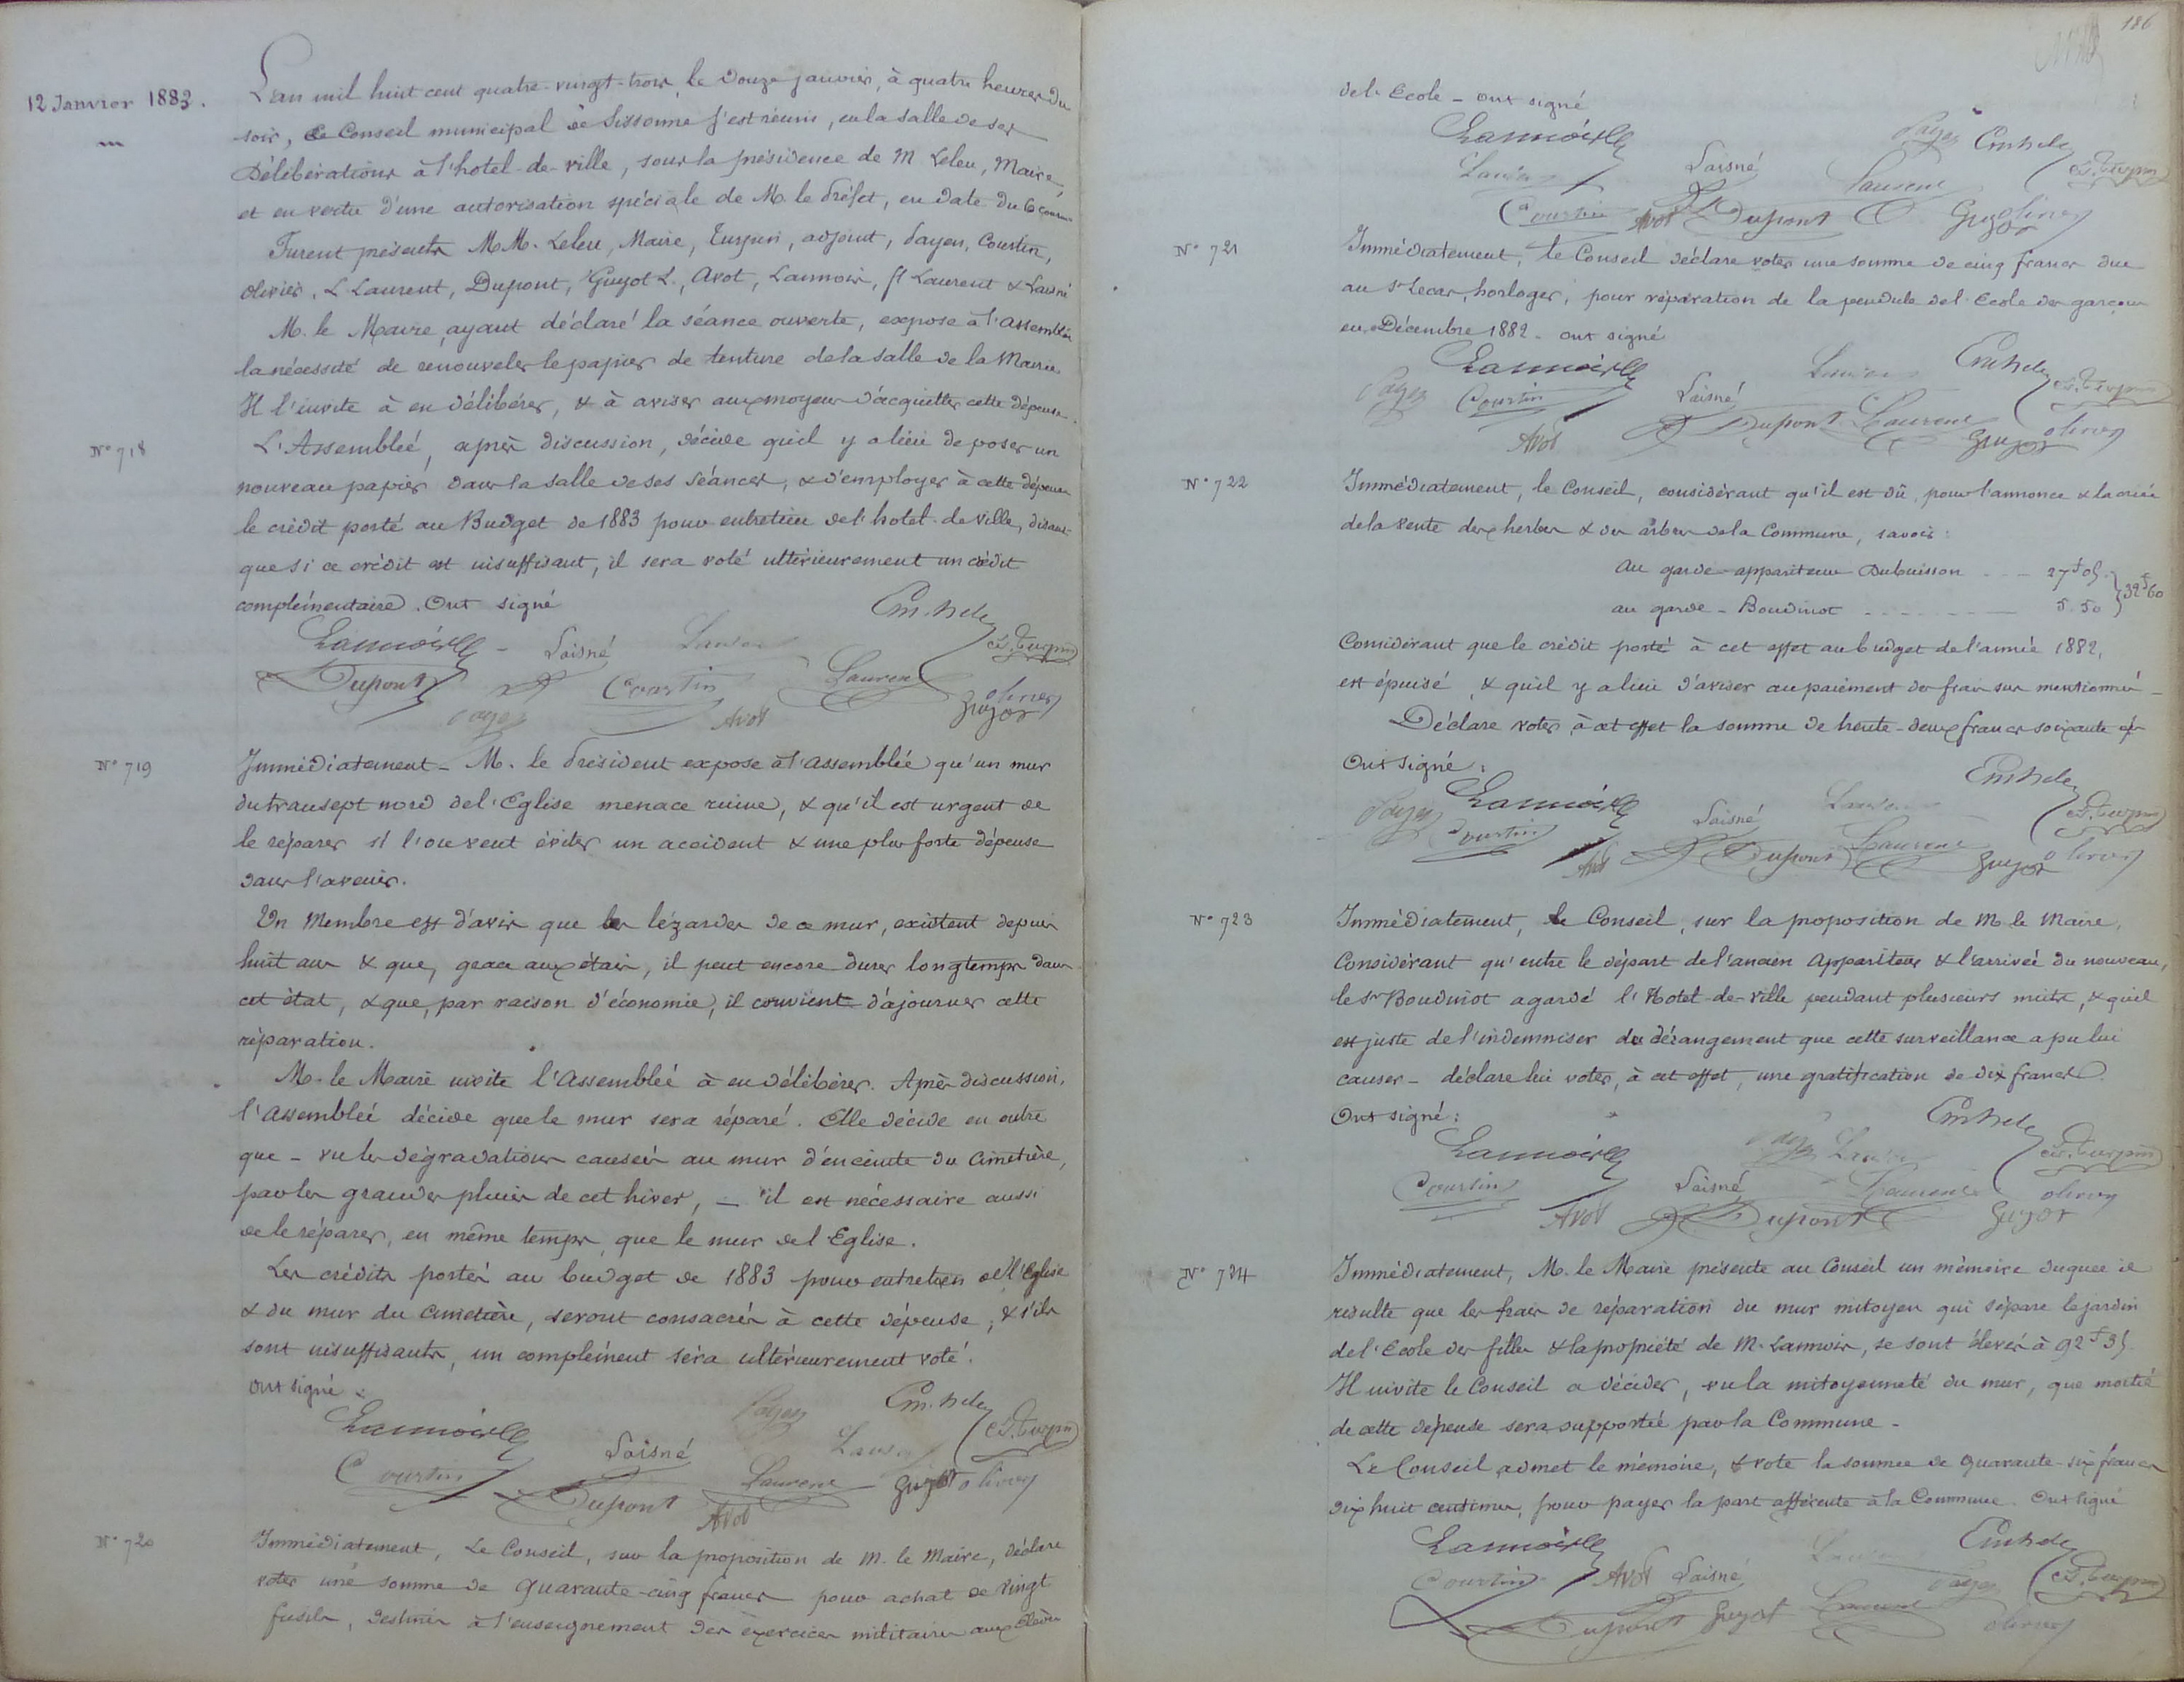 12 Janvier 1883.
L'an mil huit cent quatre-vingt-trois, le douze janvier, à quatre heures du
soir, le Conseil municipal de Sissonne s'est réuni, en la salle de ses
Délibérations à l'hotel-de-ville, sous la présidence de M Leleu, Maire,
et en vertu d'une autorisation spéciale de M. le Préfet, en date du 6 courant
Furent présents MM. Leleu, Maire, Turpin, adjoint, Payen, Courtin,
Olivier, L. Laurent, Dupont, Guyot L., Avot, Lannois, ft Laurent & Laisné
M. le Maire, ayant déclaré la séance ouverte, expose à l'assemblée
la nécessité de renouveler le papier de tenture de la salle de la Mairie.
Il l'invite à en délibérer, & à aviser aux moyens d'acquitter cette dépense.
N° 718
L'Assemblée, après discussion, décide qu'il y a lieu de poser un
nouveau papier dans la salle de ses séances, & d'employer à cette dépense
le crédit porté au Budget de 1883 pour entretien de l'hotel-de-ville, disant
que si ce crédit est insuffisant, il sera voté ultérieurement un crédit
complémentaire. Ont signé
Lannois Laisné Laurent Em. Leleu
Dupont Courtin Laurent G. Turpin
Payen Avot Guyot Olivier
N° 719
Immédiatement - M. le Président expose à l'assemblée qu'un mur
du transept nord de l'Eglise menace ruine, & qu'il est urgent de
le réparer si l'on veut éviter un accident & une plus forte dépense
dans l'avenir.
Un Membre est d'avis que les lézardes de ce mur, existent depuis
huit ans & que, grace aux étais, il peut encore durer longtemps dans
cet état, & que, par raison d'économie, il convient d'ajourner cette
réparation.
M. le Maire invite l'Assemblée à en délibérer. Après discussion,
l'Assemblée décide que le mur sera réparé. Elle décide en outre
que - vu les dégradations causées au mur d'enceinte du Cimetière,
par les grandes pluies de cet hiver, - il est nécessaire aussi
de le réparer, en même temps que le mur de l'Eglise.
Les crédits portés au budget de 1883 pour entretien de l'Eglise
& du mur du Cimetière, seront consacrés à cette dépense; & s'ils
sont insuffisants, un complément sera ultérieurement voté.
Ont signé
Lannois Payen Em. Leleu
Courtin Laisné Laurent G. Turpin
Dupont Laurent Avot Guyot Olivier
N° 720
Immédiatement, Le Conseil, sur la proposition de M. le Maire, déclare
voter une somme de quarante-cinq francs pour achat de vingt
fusils, destinés à l'enseignement des exercices militaires aux élèves
186
de l'Ecole - ont signé
Lannois Payen Em Leleu
Laurent Laisné Laurent G. Turpin
Courtin Avot Dupont Guyot Olivier
N° 721
Immédiatement, le Conseil déclare voter une somme de cinq francs due
au Sr Lecas, horloger, pour réparation de la pendule de l'Ecole des garçons
en Décembre 1882. ont signé
Lannois Laurent Em Leleu
Payen Courtin Laisné G. Turpin
Avot Dupont Laurent Guyot Olivier
N° 722
Immédiatement, le Conseil, considérant qu'il est dû, pour l'annonce & la criée
de la vente des herbes & des arbres de la Commune, savoir:
Au garde-appariteur Dubuisson 27f 05 } 32f 60
au garde-Boudinot 5.50
Considérant que le crédit porté à cet effet au budget de l'année 1882,
est épuisé, & qu'il y a lieu d'aviser au paiement des frais sus mentionnés -
Déclare voter à cet effet la somme de trente-deux francs soixante cs
Ont signé:
Lannois Laurent Em Leleu
Payen Courtin Laisné G. Turpin
Avot Dupont Laurent Guyot Olivier
N° 723
Immédiatement, le Conseil, sur la proposition de M. le Maire,
Considérant qu'entre le départ de l'ancien Appariteur & l'arrivée du nouveau,
le Sr Boudinot a gardé l'Hotel-de-ville pendant plusieurs nuits, & qu'il
est juste de l'indemniser du dérangement que cette surveillance a pu lui
causer - déclare lui voter, à cet effet, une gratification de dix francs.
Ont signé:
Lannois Payen Laurent Em Leleu
Courtin Laisné Laurent G. Turpin
Avot Dupont Guyot Olivier
N° 724
Immédiatement, M. le Maire présente au Conseil un mémoire duquel il
résulte que les frais de réparation du mur mitoyen qui sépare le jardin
de l'Ecole des filles & la propriété de M. Lannois, se sont élevés à 92f 35.
Il invite le Conseil a décider, vu la mitoyenneté du mur, que moitié
de cette dépense sera supportée par la Commune -
Le Conseil admet le mémoire, & vote la somme de quarante-six francs
dix huit centimes, pour payer la part afférente à la Commune. Ont signé
Lannois Laurent Em Leleu
Courtin Avot Laisné Payen G. Turpin
Dupont Guyot Laurent Olivier